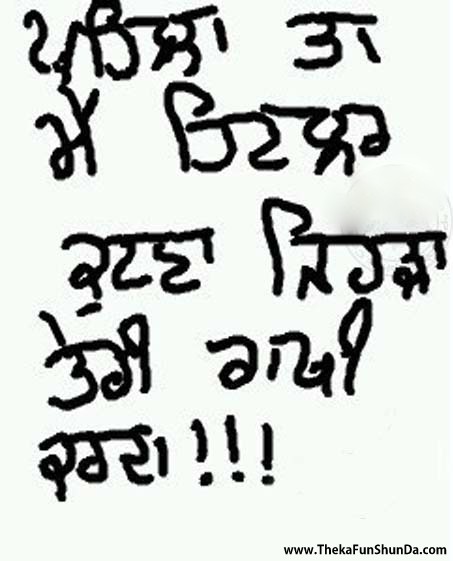 ਪਹਿਲਾ ਤਾ
ਮੈਂ ਹਿਟਲਰ
ਕੁਟਣਾ ਜਿਹੜਾ
ਤੇਰੀ ਰਾਖੀ
ਕਰਦਾ!!!
www.ThekaFunShunDa.com